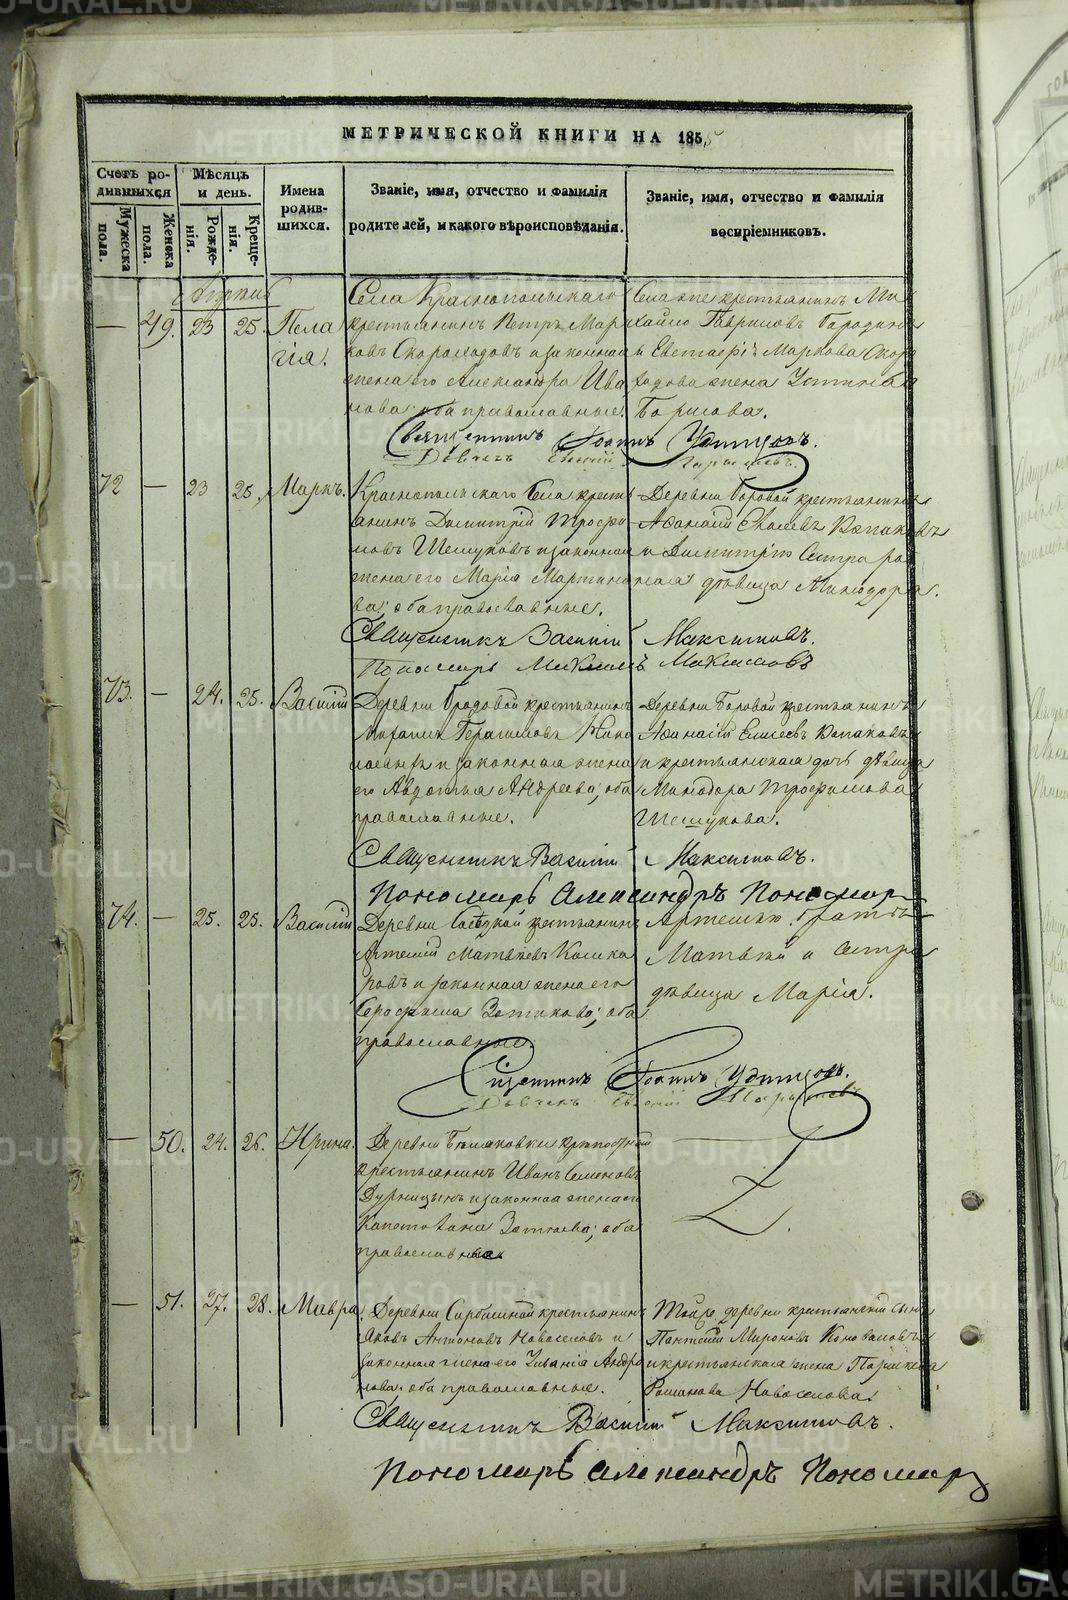 МЕТРИЧЕСКОЙ КНИГИ НА 1855
Счетъ ро-
дившихся
Мѣсяцъ
и день.
Имена
родив-
шихся.
Званіе, имя, отчество и фамилія
родителей, и какого вѣроисповѣданія.
Званіе, имя, отчество и фамилія
воспріемниковъ.
Мужеска
пола.
Женска
пола.
Рожде-
нія.
Креще-
нія.
— 49. 23 25. Пела
гія.
Села Краснопольскаго
крестьянинъ Петръ Мар
ковъ Скороходовъ и законная
жена его Александра Ива
нова; оба православные.
Села же крестьянинъ Ми
хайло Гавриловъ
и Евстафія Маркова Скоро
ходова жена Устинья
Борисова.
Священникъ Іоаннъ Удинцовъ.
72 — 23 25. Маркъ.
Краснопольскаго Села кресть
янинъ Димитрій Трофи
мовъ Шешуковъ и законная
жена его Марія Мартинова
ва; оба православные.
Деревни Боровой крестьянинъ
Аѳанасій
и Димитрію Сестра ро
дная дѣвица Минодора.
Священникъ Василій Максимовъ.
Пономарь Максимовъ
73. — 24. 25. Василій
Деревни Бродовой крестьянинъ
Герасимовъ
и законная жена
его Авдотья Андреева; оба
православные.
Деревни Боровой крестьянинъ
Аѳанасій Елисеевъ
и крестьянская дочь дѣвица
Минодора Трофимова
Шешукова.
Священникъ Василій Максимовъ.
Пономарь Александръ Пономар
74. — 25. 25. Василій
Деревни крестьянинъ
Артемій Матвѣевъ Кошка
ровъ и законная жена его
Серафима Зотикова; оба
православные.
Артемью братъ
Матвѣй и Сестра
дѣвица Марія.
Священникъ Іоаннъ Удинцовъ.
— 50. 24. 26. Ирина.
Деревни
крестьянинъ Иванъ Семеновъ
и законная жена его
Капетолина Зотеева; оба
православные.
— 51. 27. 28. Мавра.
Деревни крестьянинъ
Яковъ Антоновъ Новоселовъ и
законная жена его Улианія Андро
нова; оба православные.
Той же деревни крестьянскій сынъ
Пантелій Мироновъ Коноваловъ
и крестьянская жена Параскева
Романова Новоселова.
Священникъ Василій Максимовъ.
Пономарь Александръ Пономар
METRIKI.GASO-URAL.RU